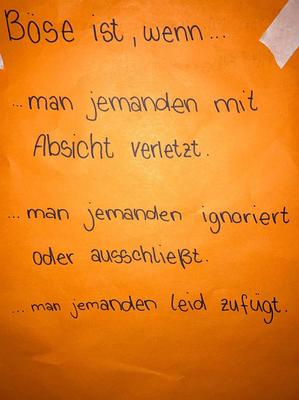 Böse ist, wenn...
...man jemanden mit
Absicht verletzt.
...man jemanden ignoriert
oder ausschließt.
...man jemanden Leid zufügt.